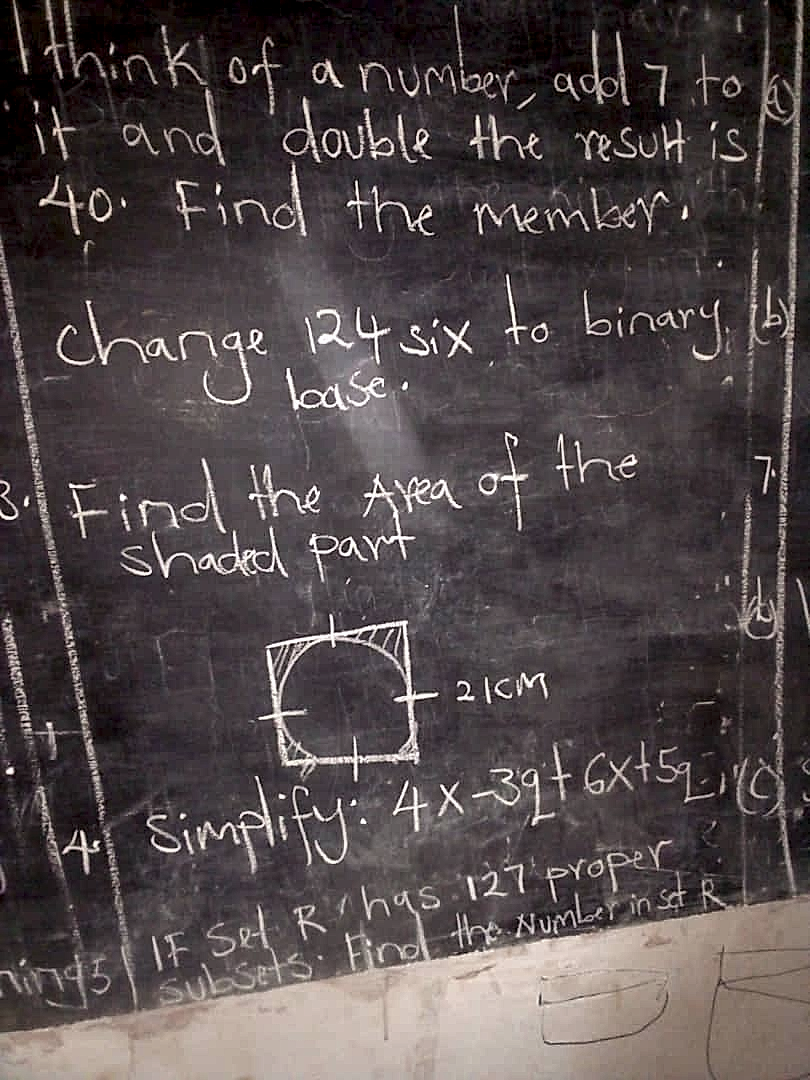 I think of a number, add 7 to (a)
it and double the result is
40. Find the member.
change 124 six to binary (b)
base.
3. Find the Area of the 7.
shaded part
(b)
21cm
4. Simplify: 4x-3q+6x+5q (c)
5 IF Set R has 127 proper
subsets. Find the Number in set R